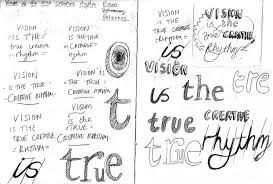 VISION
IS THE
true creative
rhythm
VISION
IS THE TRUE
CREATIVE
rhythm
VISION
IS THE TRUE
CREATIVE RHYTHM
VISION
IS THE TRUE
CREATIVE RHYTHM
VISION
IS THE
TRUE CREATIVE
RHYTHM
Vision
is the
TRUE
CREATIVE RHYTHM
is
true
VISION
IS THE
true creative
RHYTHM
VISION
is the
true
CREATIVE
Rhythm
VISION
is the t
true CREATIVE
t rhythm